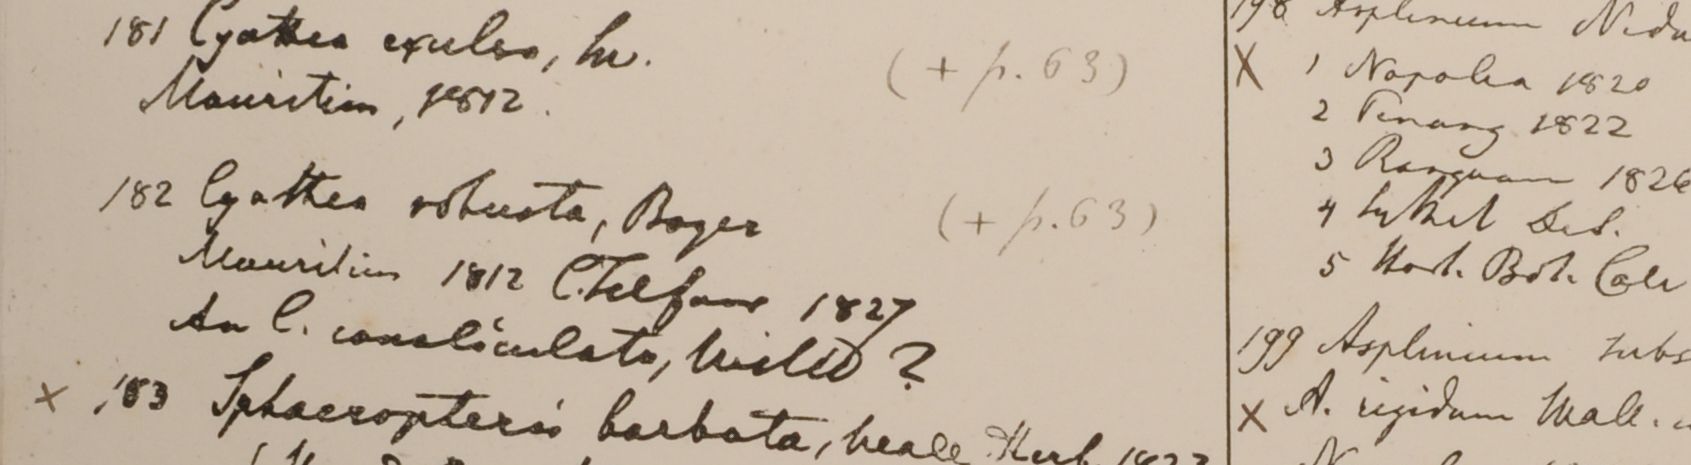 181 Cyathea excelsa, Sw.
(+ p. 63)
Mauritius, 1812.
182 Cyathea robusta, Boyer
(+ p. 63)
Mauritius 1812 C. Telfair 1827
An C. canaliculata, Willd ?
× 183 Sphaeropteris barbata, Wall. Herb. 1823
198 Asplenium Nidu
X 1 Napalia 1820
2 Penang 1822
3 Rangoon 1826
4 Sylhet
5 Hort. Bot. Calc
199 Asplenium subs
X A. rigidum Wall.